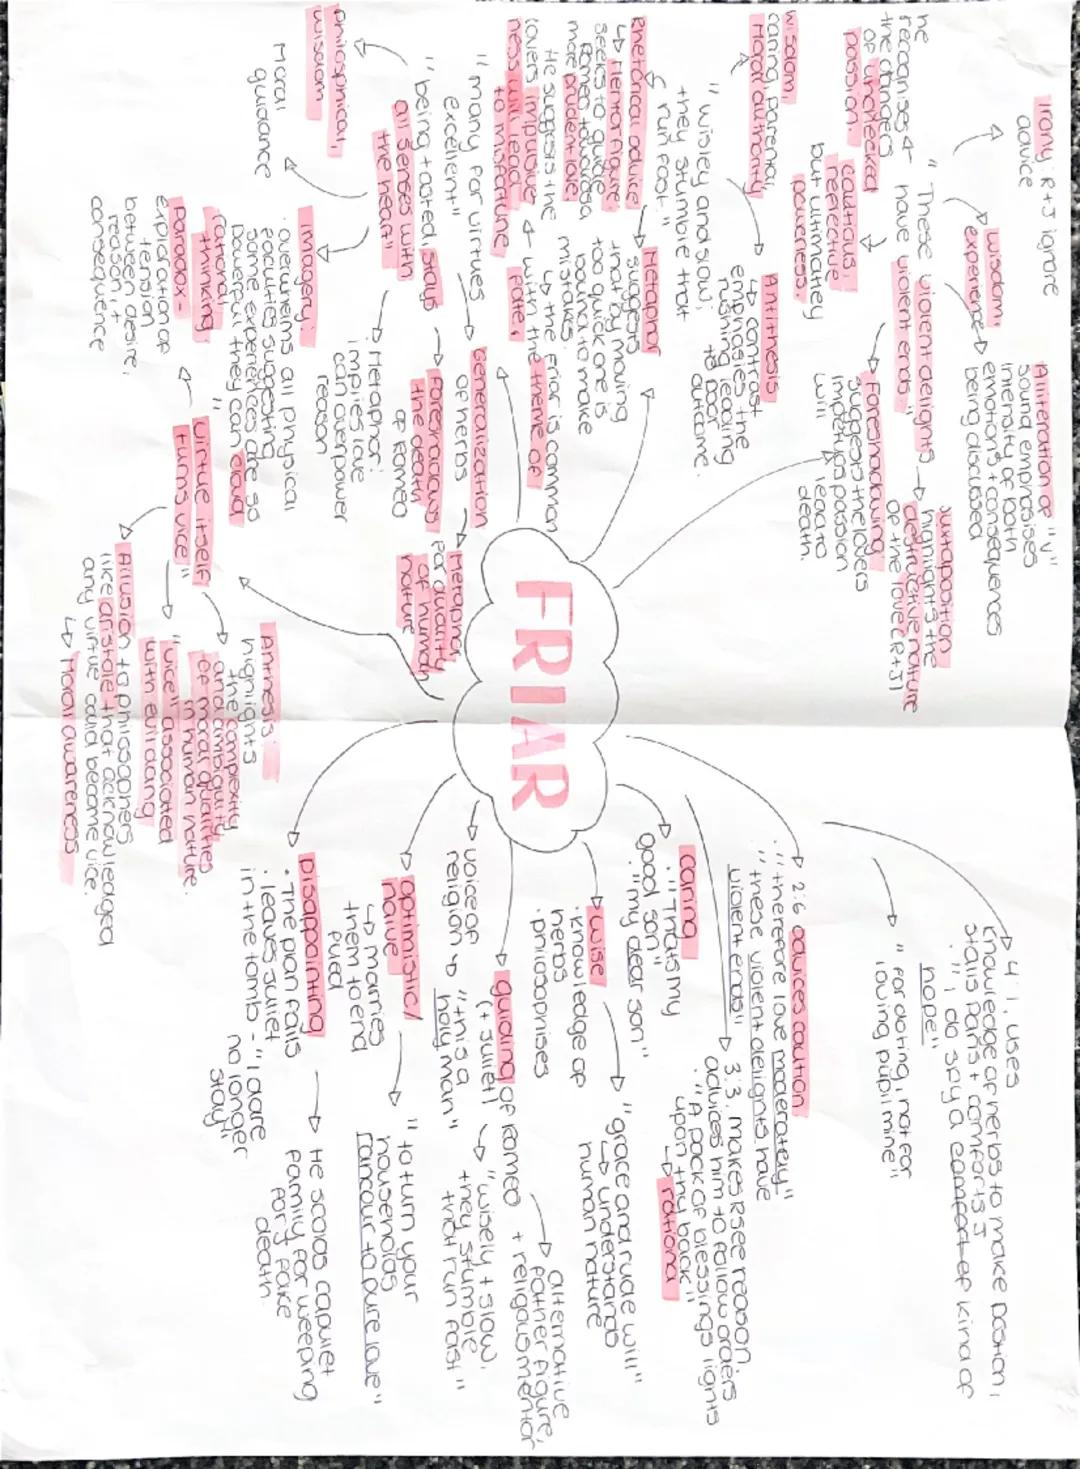 Irony: R+J ignore
advice
wisdom,
experience
Alliteration of "v"
sound emphasises
intensity of both
emotions + consequences
being discussed
he
recognises
the dangers
of unchecked
passion.
"These violent delights
have violent ends"
Juxtaposition
highlights the
destructive nature
of the love (R+J)
cautious,
reflective
but ultimatley
powerless.
Foreshadowing
suggests the lovers
impetuous passion
will lead to
death.
wisdom,
caring, parental,
Moral authority
"wisley and slow;
they stumble that
run fast."
Antithesis
↳ contrast
emphasies the
rushing leading
to poor
outcome.
Rhetorical advice
↳ Mentor figure.
seeks to guide
Romeo towards a
more prudent love
Metaphor
suggests
that by moving
too quick one is
bound to make
mistakes.
He suggests the
lovers impulsive
ness will lead
to misfortune
↳ the Friar is common
with the theme of
fate.
"many for virtues
excellent"
Generalization
of herbs
Metaphor
for duality
of human
nature
"being tasted, stays
all senses with
the heart"
Foreshadows
the death
of Romeo
Metaphor:
implies love
can overpower
reason
philosphical,
wisdom
Moral
guidance
Imagery:
. overwhelms all physical
faculties suggesting
some experiences are so
powerful they can cloud
rational
thinking
Paradox -
exploration of
tension
between desire,
reason, +
consequence
"virtue itself
turns vice"
Anthesis:
highlights
the complexity
and ambiguity
of moral qualities
in human nature.
"vice" associated
with evil doing
Allusion to philosophers
like aristole that acknowledged
any virtue could become vice.
↳ Moral awareness
FRIAR
4.1, uses
knowledge of herbs to make potion,
stalls Paris + comforts J
. "I do spy a comfort of kind of
hope"
"for doting, not for
loving pupil mine"
2:6 advices caution
. "therefore love moderately"
"these violent delights have
violent ends"
3:3. makes R see reason.
advices him to follow orders
. "A pack of blessings lights
upon thy back"
↳ rational
caring
. "Thats my
good son"
. "my dear son"
wise
. knowledge of
herbs
. philosophises
"grace and rude will"
↳ understands
human nature
guiding of Romeo
(+ Juliet)
alternative
father figure,
+ religous mentor
"wisely + slow,
they stumble
that run fast"
voice of
religion
"this a
holy man"
optimistic/
naive
↳ marries
them to end
fued
"to turn your
households
rancour to pure love"
Disappointing
. The plan fails
. leaves Juliet
in the tomb - "I dare
no longer
stay"
He scolds capulet
family for weeping
for fake
death.